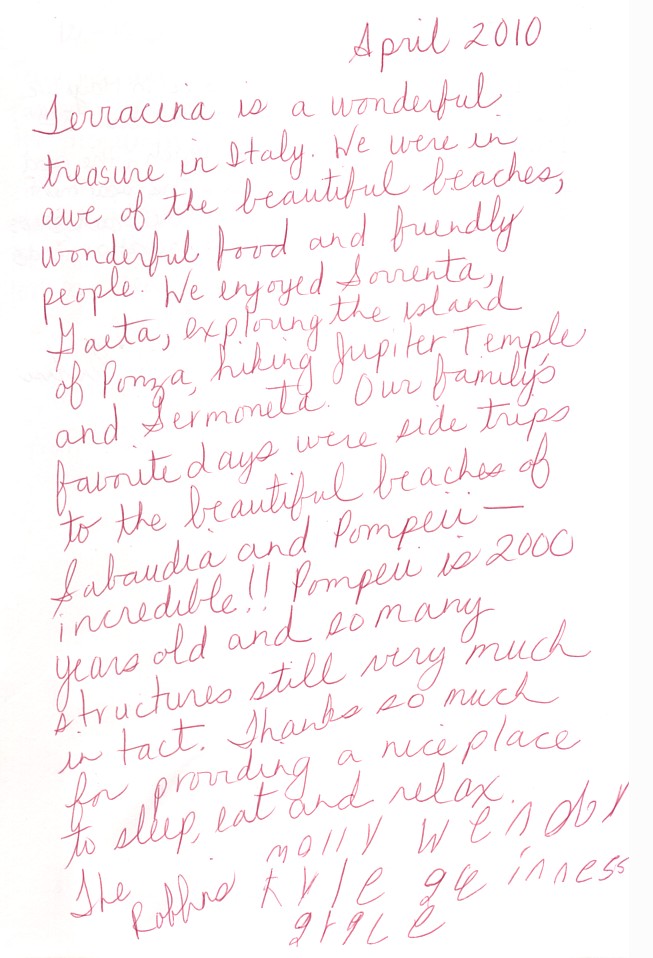 April 2010
Terracina is a wonderful
treasure in Italy. We were in
awe of the beautiful beaches,
wonderful food and friendly
people. We enjoyed Sorrenta,
Gaeta, exploring the island
of Ponza, hiking Jupiter Temple
and Sermoneta. Our family's
favorite days were side trips
to the beautiful beaches of
Sabaudia and Pompeii —
incredible!! Pompeii is 2000
years old and so many
structures still very much
in tact. Thanks so much
for providing a nice place
to sleep, eat and relax.
The Robbins molly wendy
kyle
grace